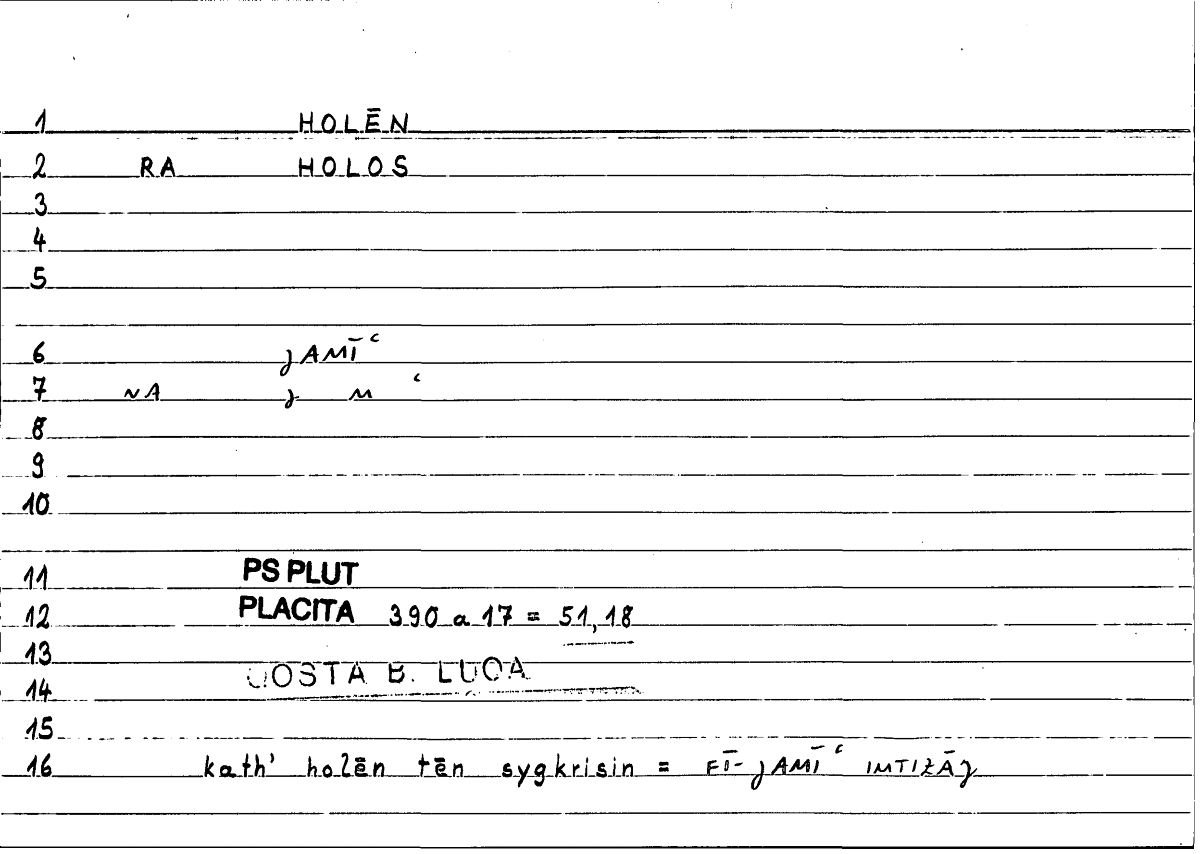 1 HOLĒN
2 RA HOLOS
3
4
5
6 ȷAMĪʿ
7 NA ȷ M ʿ
8
9
10
11 PS PLUT
12 PLACITA 390 a 17 = 51,18
13
14 QOSTA B. LUQA
15
16 kath' holēn tēn sygkrisin = FĪ-ȷAMĪʿ IMTIZĀȷ